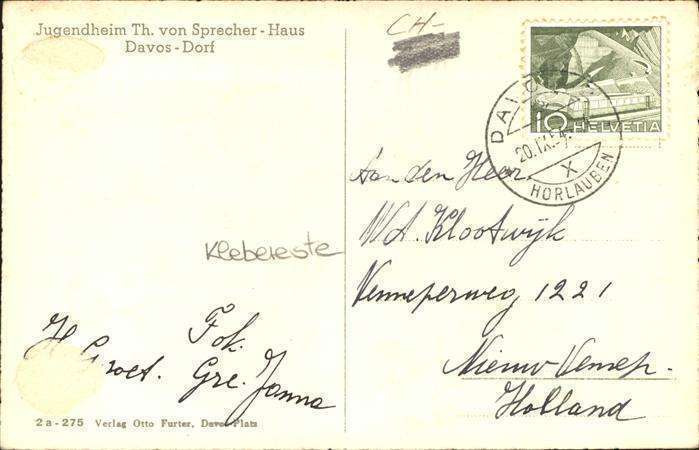 Jugendheim Th. von Sprecher-Haus
Davos-Dorf
CH-
10 HELVETIA
20.IX.54.
X
HORLAUBEN
Aan den Heer
W.A. Klootwijk
Venneperweg 1221
Nieuw-Vennep.
Holland
Klebereste
H. Groet.
Fok.
Gré. Janna
2a-275 Verlag Otto Furter, Davos-Platz